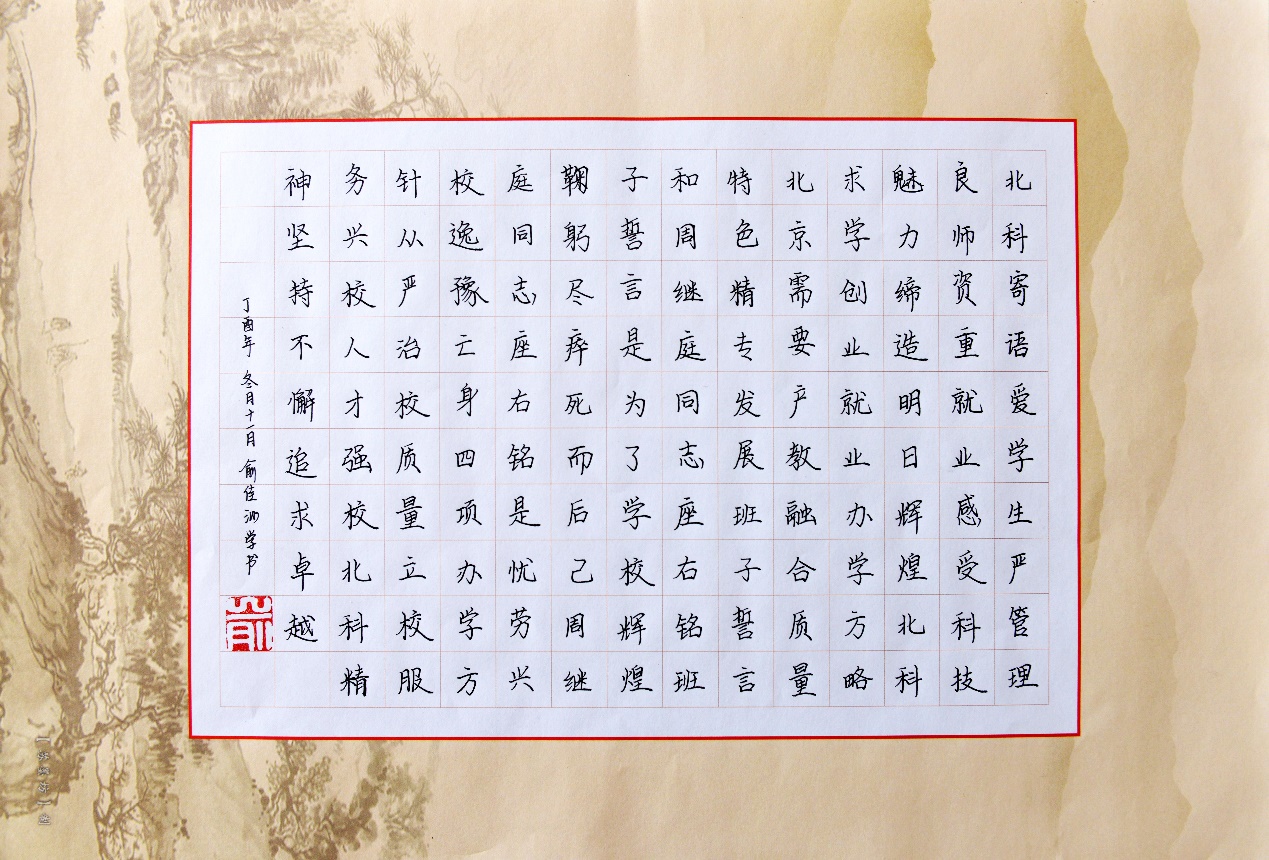 北科寄语爱学生严管理
良师资重就业感受科技
魅力缔造明日辉煌北科
求学创业就业办学方略
北京需要产教融合质量
特色精专发展班子誓言
和周继庭同志座右铭班
子誓言是为了学校辉煌
鞠躬尽瘁死而后己周继
庭同志座右铭是忧劳兴
校逸豫亡身四项办学方
针从严治校质量立校服
务兴校人才强校北科精
神坚持不懈追求卓越
丁酉年 冬月十一月 俞佳汕学书